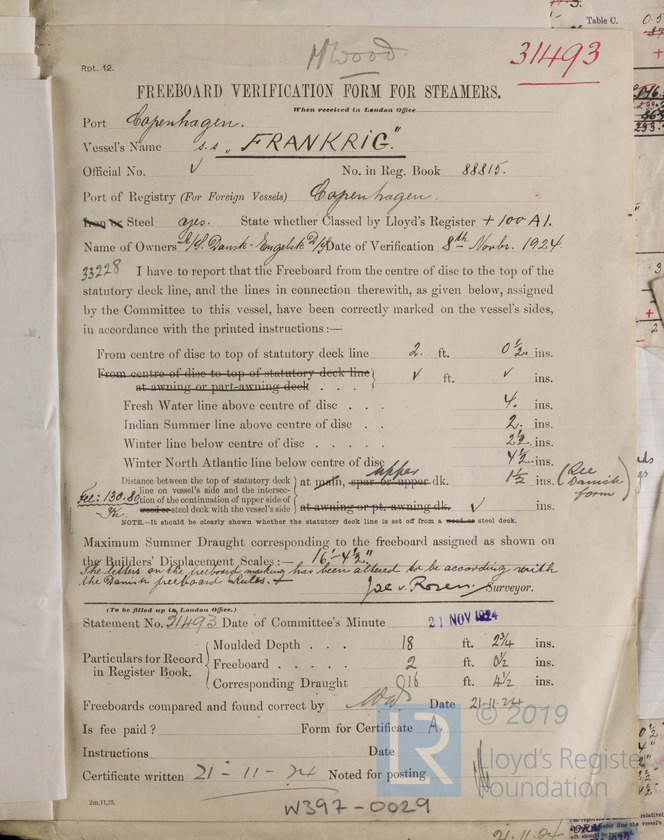 Table C.
N Wood
31493
Rpt. 12.
FREEBOARD VERIFICATION FORM FOR STEAMERS.
When received in London Office
Port Copenhagen.
Vessel's Name s.s „FRANKRIG."
Official No. ✓ No. in Reg. Book 88815.
Port of Registry (For Foreign Vessels) Copenhagen.
Iron or Steel yes. State whether Classed by Lloyd's Register +100 A1.
Name of Owners A/S. Dansk-Engelsk D/S Date of Verification 8th Novbr. 1924.
33228
I have to report that the Freeboard from the centre of disc to the top of the
statutory deck line, and the lines in connection therewith, as given below, assigned
by the Committee to this vessel, have been correctly marked on the vessel's sides,
in accordance with the printed instructions:—
From centre of disc to top of statutory deck line 2. ft. 0½.. ins.
From centre of disc to top of statutory deck line
at awning or part-awning deck . . . ✓ ft. ✓ ins.
Fresh Water line above centre of disc . . . 4. ins.
Indian Summer line above centre of disc . . 2. ins.
Winter line below centre of disc . . . . . 2½. ins.
Winter North Atlantic line below centre of disc 4½. ins.
Distance between the top of statutory deck
line on vessel's side and the intersec-
tion of the continuation of upper side of
wood or steel deck with the vessel's side
upper
at main, spar or upper dk. 1½ ins. (See Danish form)
at awning or pt. awning dk. ✓ ins.
Fee: 130.80
Kr.
NOTE.—It should be clearly shown whether the statutory deck line is set off from a wood or steel deck.
Maximum Summer Draught corresponding to the freeboard assigned as shown on
the Builders' Displacement Scales:— 16'-4½"
The letters on the freeboard marking has been altered to be according with
the Danish freeboard rules.
Joe v. Rosen Surveyor.
(To be filled up in London Office.)
Statement No. 31493 Date of Committee's Minute 21 NOV 1924
Particulars for Record
in Register Book.
Moulded Depth . . . 18 ft. 2¾ ins.
Freeboard . . . . . 2 ft. 0½ ins.
Corresponding Draught 16 ft. 4½ ins.
Freeboards compared and found correct by Date 21.11.24
Is fee paid? Form for Certificate A.
Instructions Date
Certificate written 21-11-24 Noted for posting
2m,11,23.
W397-0029
LR
© 2019
Lloyd's Register
Foundation
21.11.24